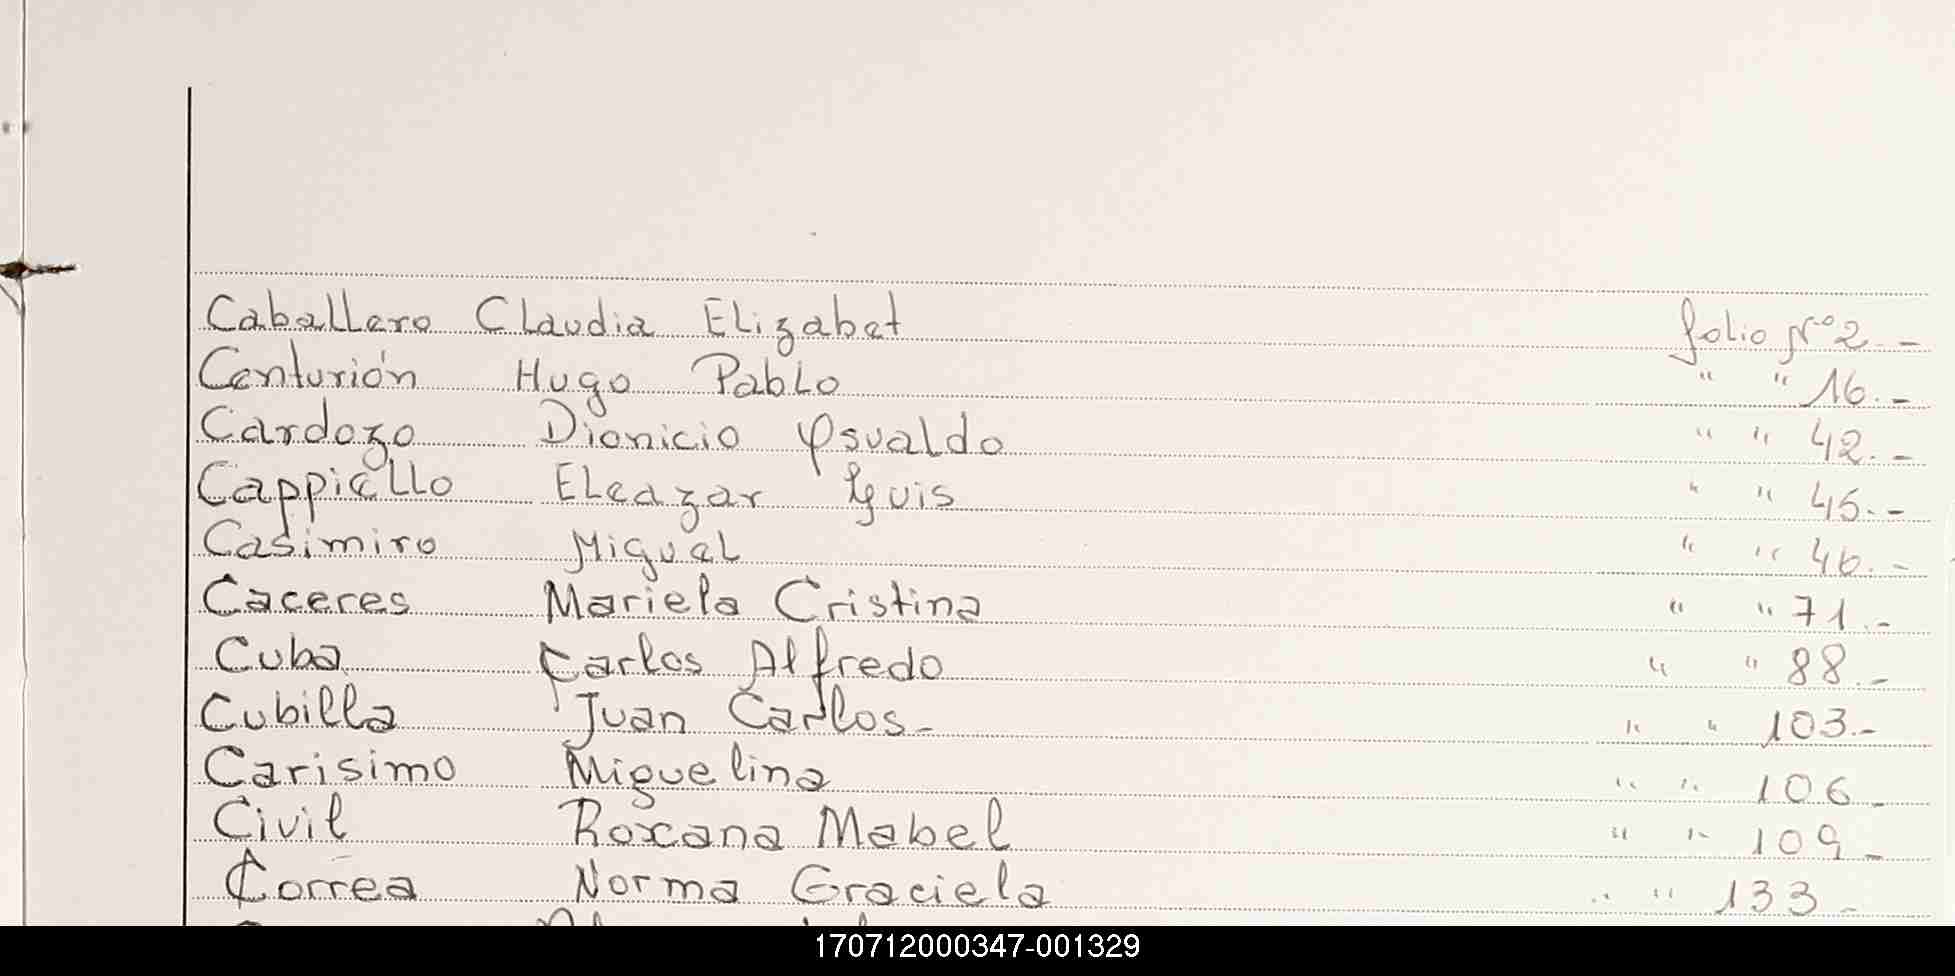 Caballero Claudia Elizabet folio Nº 2.-
Centurión Hugo Pablo " " 16.-
Cardozo Dionicio Osvaldo " " 42.-
Cappiello Eleazar Luis " " 45.-
Casimiro Miguel " " 46.-
Caceres Mariela Cristina " " 71.-
Cuba Carlos Alfredo " " 88.-
Cubilla Juan Carlos- " " 103.-
Carisimo Miguelina " " 106-
Civil Roxana Mabel " " 109-
Correa Norma Graciela " " 133-
170712000347-001329